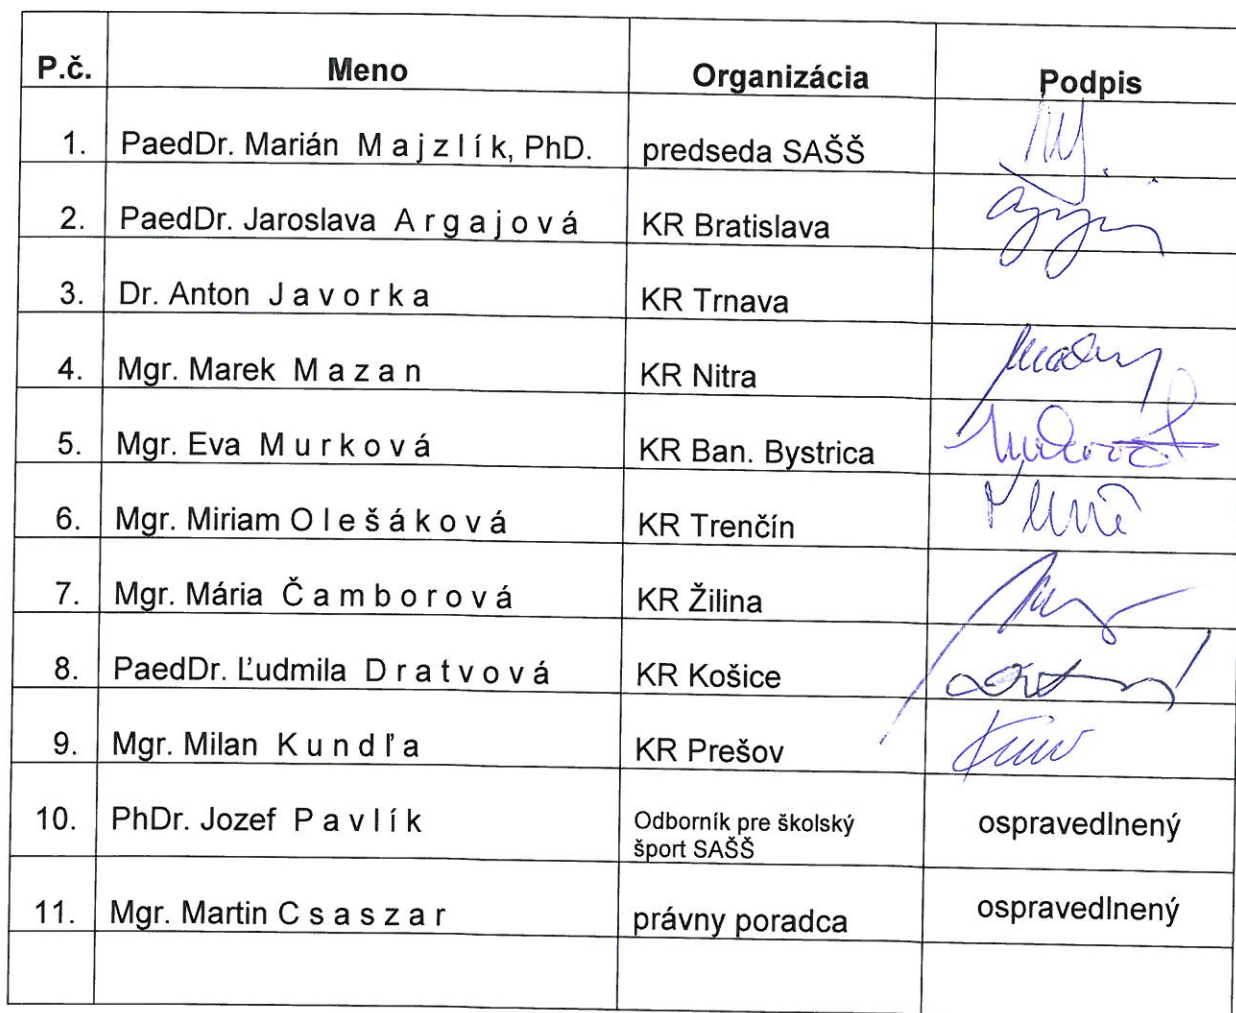 P.č. Meno Organizácia Podpis
1. PaedDr. Marián M a j z l í k, PhD. predseda SAŠŠ
2. PaedDr. Jaroslava A r g a j o v á KR Bratislava
3. Dr. Anton J a v o r k a KR Trnava
4. Mgr. Marek M a z a n KR Nitra
5. Mgr. Eva M u r k o v á KR Ban. Bystrica
6. Mgr. Miriam O l e š á k o v á KR Trenčín
7. Mgr. Mária Č a m b o r o v á KR Žilina
8. PaedDr. Ľudmila D r a t v o v á KR Košice
9. Mgr. Milan K u n d ľ a KR Prešov
10. PhDr. Jozef P a v l í k Odborník pre školský ospravedlnený
šport SAŠŠ
11. Mgr. Martin C s a s z a r právny poradca ospravedlnený